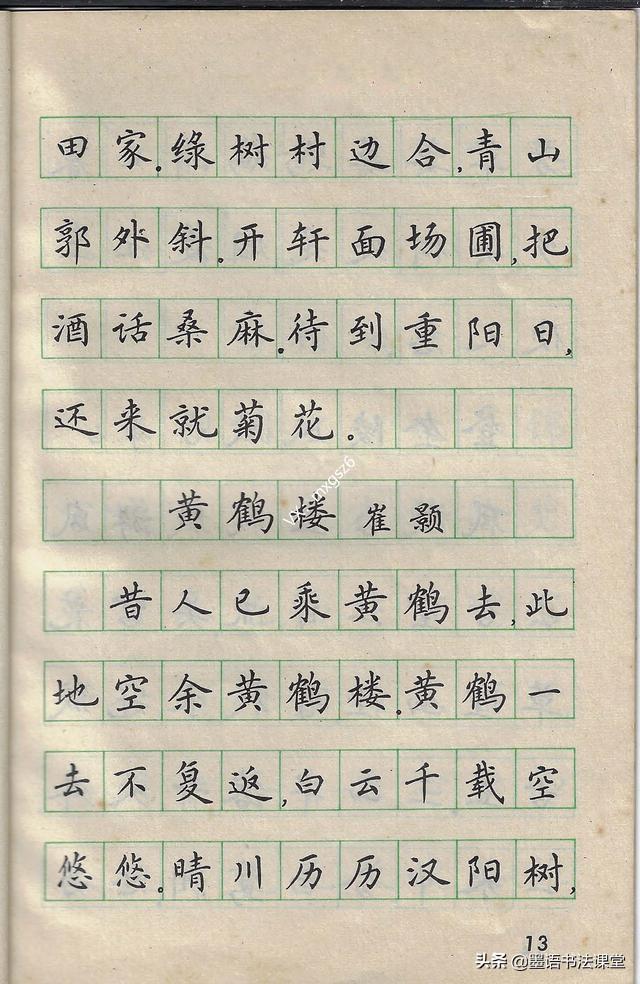 田家。绿树村边合,青山
郭外斜。开轩面场圃,把
酒话桑麻。待到重阳日,
还来就菊花。
黄鹤楼 崔颢
昔人已乘黄鹤去,此
地空余黄鹤楼。黄鹤一
去不复返,白云千载空
悠悠。晴川历历汉阳树,
13
头条 @墨语书法课堂